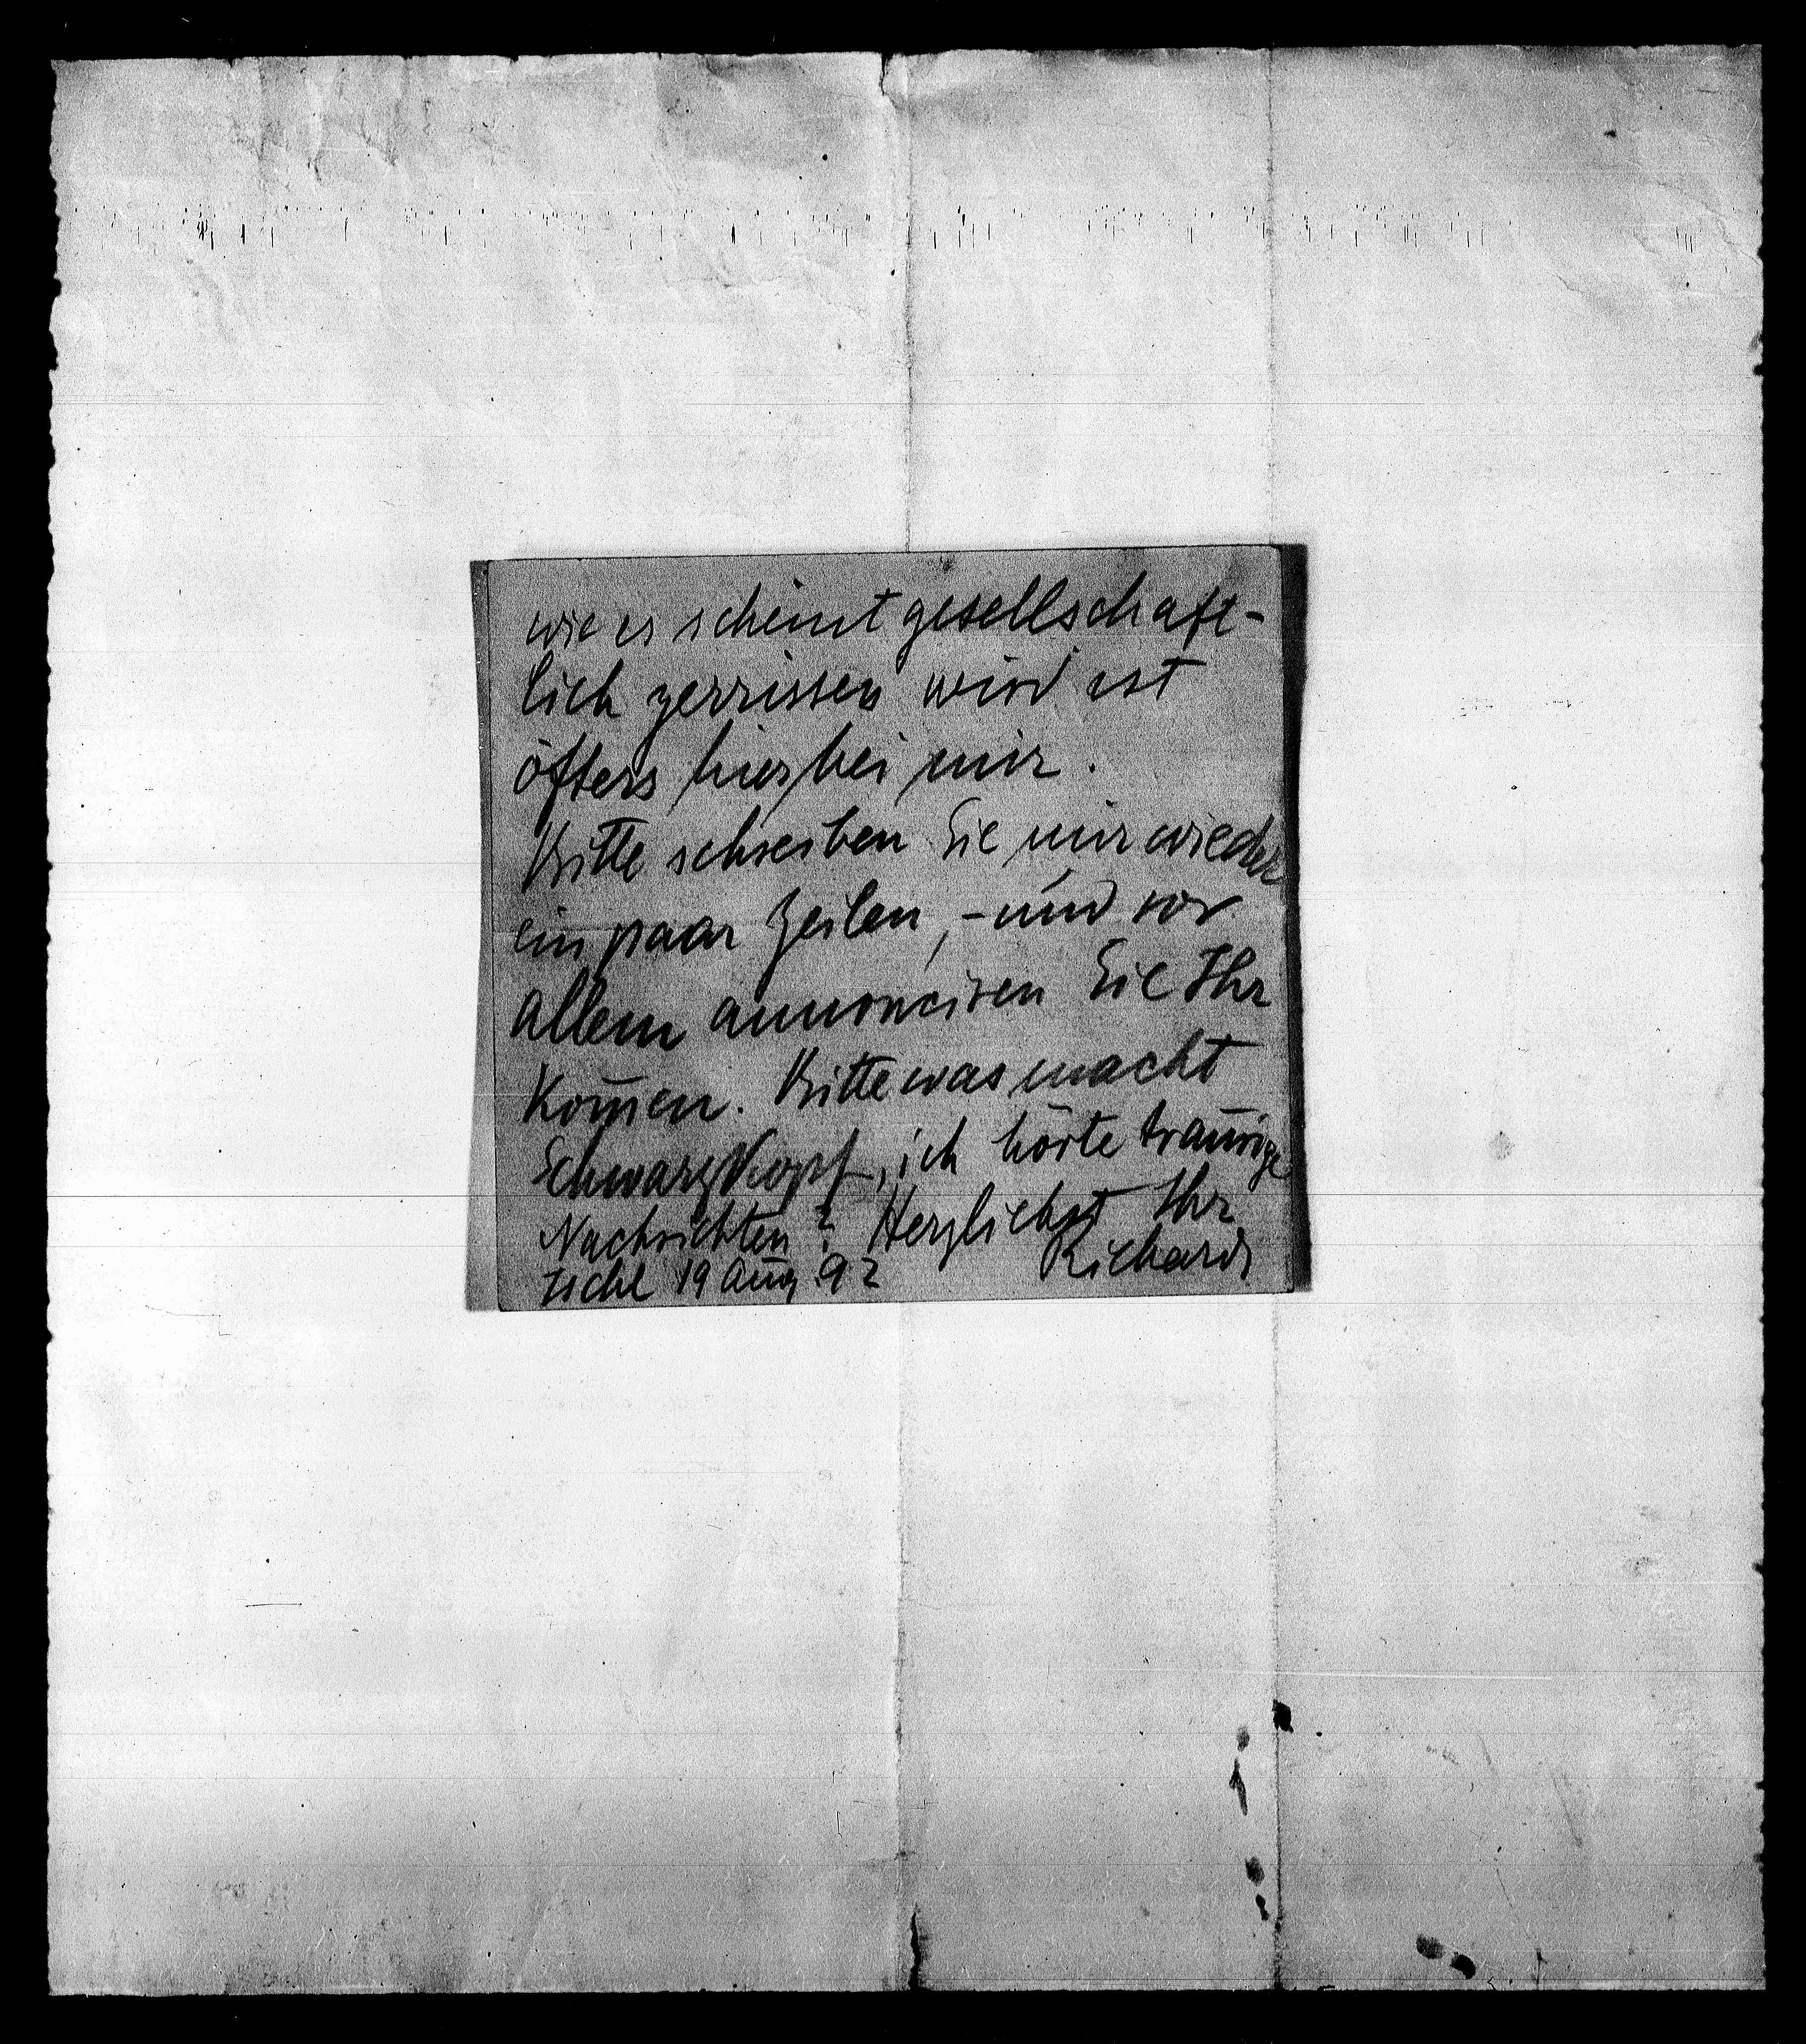 wie es scheint gesellschaft-
lich zerrissen wird ist
öfters hier bei mir.
Bitte schreiben Sie mir wieder
ein paar Zeilen, – und vor
allem annonciren Sie Ihr
Kom̄en. Bitte was macht
Schwarzkopf, ich hörte traurige
Nachrichten? Herzlichst Ihr
Ischl 19 Aug. 92 Richard